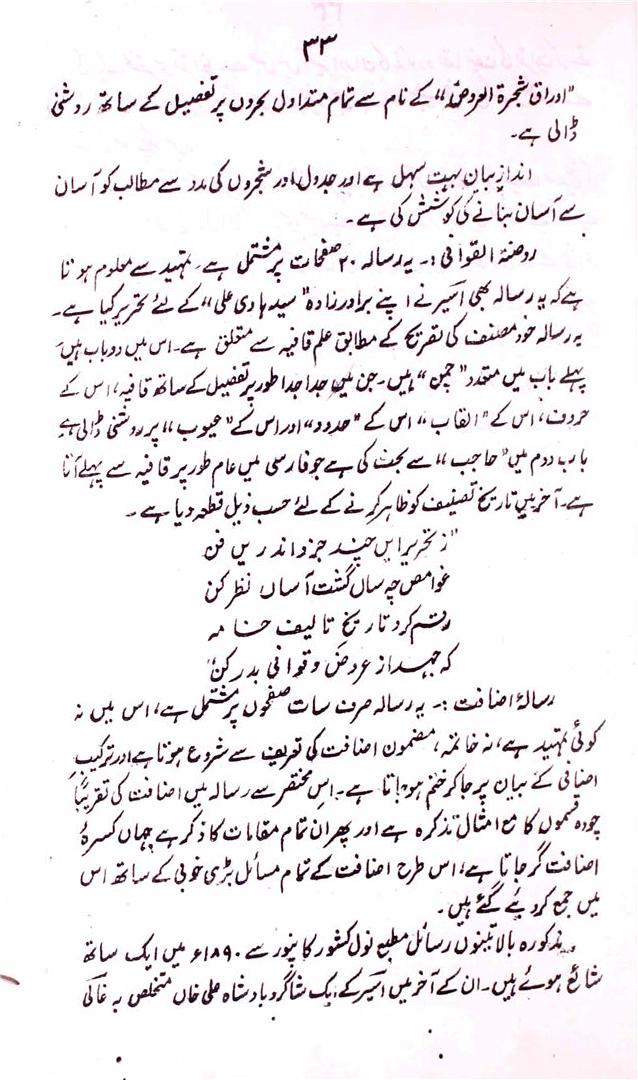 ۳۳
"اوراق شجرۃ العروض" کے نام سے تمام متداول بحروں پر تفصیل کے ساتھ روشنی
ڈالی ہے۔
انداز بیان بہت سہل ہے اور جدول اور شجروں کی مدد سے مطالب کو آسان
سے آسان بنانے کی کوشش کی ہے۔
روضۃ القوافی :۔ یہ رسالہ ۲۰ صفحات پر مشتمل ہے۔ تمہید سے معلوم ہوتا
ہے کہ یہ رسالہ بھی اسیر نے اپنے برادر زادہ "سید ہادی علی" کے لئے تحریر کیا ہے۔
یہ رسالہ خود مصنف کی تصریح کے مطابق علم قافیہ سے متعلق ہے۔ اس میں دو باب ہیں۔
پہلے باب میں متعدد "چمن" ہیں۔ جن میں جدا جدا طور پر تفصیل کے ساتھ قافیہ، اس کے
حروف، اس کے "القاب" اس کے "حدود" اور اس کے "عیوب" پر روشنی ڈالی ہے
باب دوم میں "حاجب" سے بحث کی ہے جو فارسی میں عام طور پر قافیہ سے پہلے آتا
ہے۔ آخر میں تاریخ تصنیف کو ظاہر کرنے کے لئے حسب ذیل قطعہ دیا ہے۔
"ز تحریر ایں چند جزو اندریں فن
غوامض چہ ساں گشت آساں نظر کن
رقم کرد تاریخ تالیف خامہ
کہ جہد از عروض و قوافی بدر کن"
رسالۂ اضافت :۔ یہ رسالہ صرف سات صفحوں پر مشتمل ہے، اس میں نہ
کوئی تمہید ہے، نہ خاتمہ، مضمون اضافت کی تعریف سے شروع ہوتا ہے اور ترکیب
اضافی کے بیان پر جا کر ختم ہو جاتا ہے۔ اس مختصر سے رسالہ میں اضافت کی تقریباً
چودہ قسموں کا مع امثال تذکرہ ہے اور پھر ان تمام مقامات کا ذکر ہے جہاں کسرۂ
اضافت گر جاتا ہے، اس طرح اضافت کے تمام مسائل بڑی خوبی کے ساتھ اس
میں جمع کر دیئے گئے ہیں۔
مذکورہ بالا تینوں رسائل مطبع نول کشور کانپور سے ۱۸۹۰ء میں ایک ساتھ
شائع ہوئے ہیں۔ ان کے آخر میں اسیر کے ایک شاگرد بادشاہ علی خاں متخلص بہ عالی